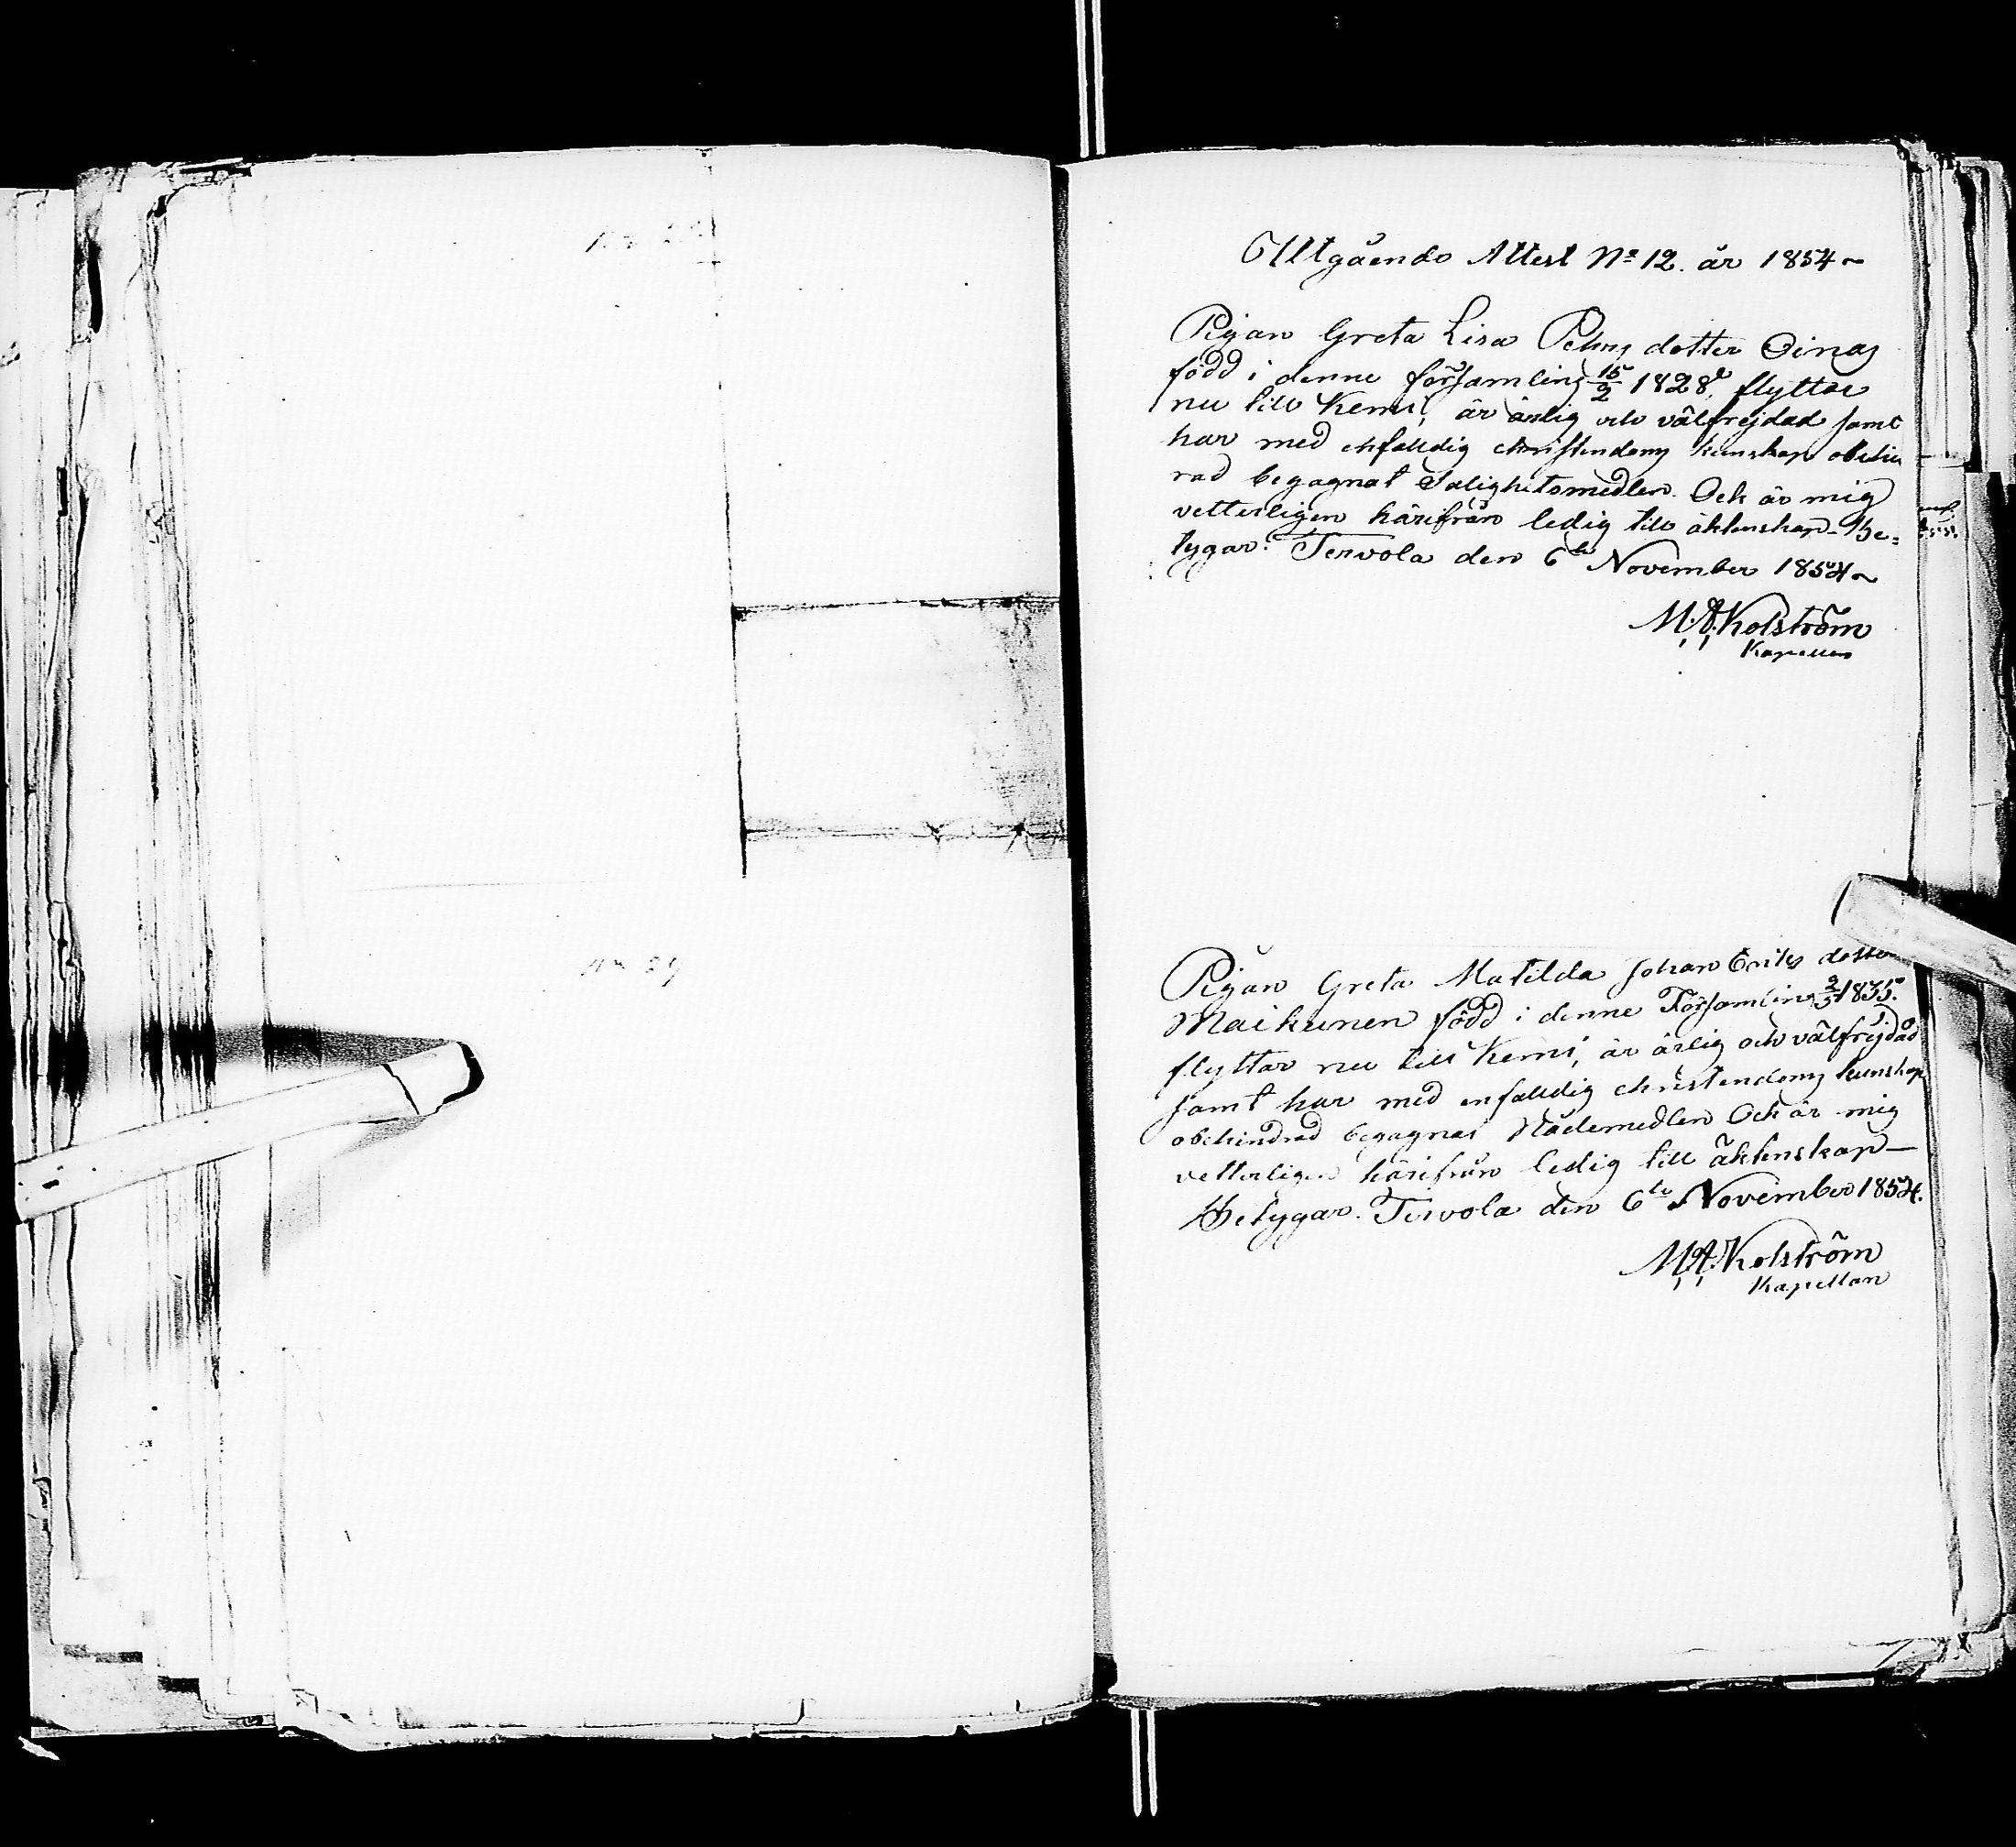 Utgående Attest No 12. år 1854
Pigan Greta Lisa Pehrs dotter Oinas
född i denne församling 15/2 1828, flyttar
nu till Kemi, är ärlig och välfrejdad samt
har med enfalldig christendoms kunskap obehin
rad begagnat Salighetsmedlen. Och är mig
vetterligen härifrån ledig till äktenskap - Be=
tygar. Tervola den 6te November 1854
M. A. Kolström
Kapellan
Pigan Greta Matilda Johan Eriks dotter
Maikunen född i denne Församling 2/5 1835.
flyttar nu till Kemi, är ärlig och välfrejdad
samt har med enfalldig christendoms kunskap
obehindrad begagnat Nådemedlen Och är mig
vetterligen härifrån ledig till äktenskap —
Betygar. Tervola den 6te November 1854.
M. A. Kolström
Kapellan